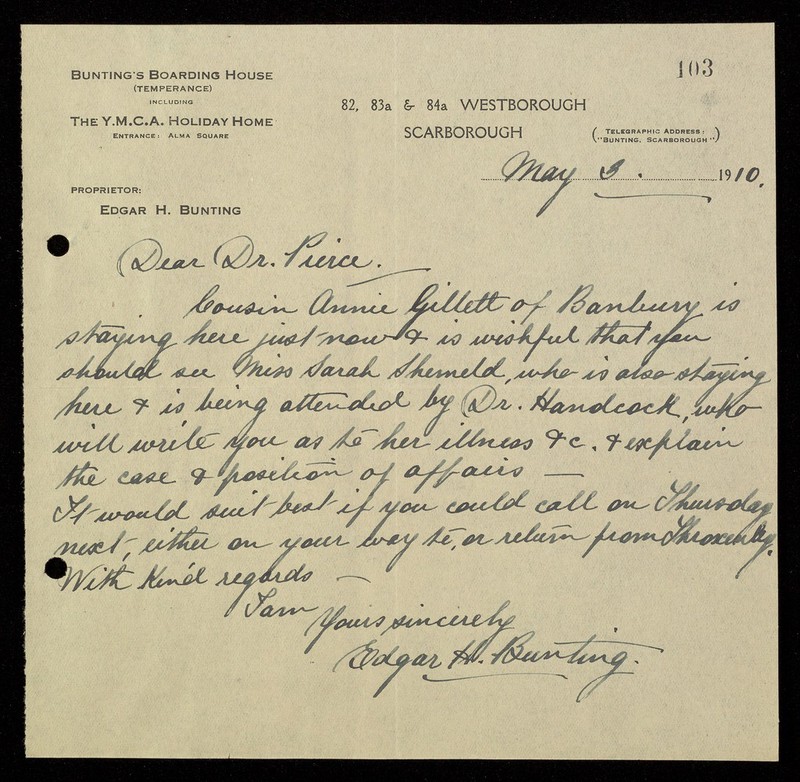 103
BUNTING'S BOARDING HOUSE
(TEMPERANCE)
INCLUDING
THE Y.M.C.A. HOLIDAY HOME
ENTRANCE: ALMA SQUARE
82, 83a & 84a WESTBOROUGH
SCARBOROUGH
(TELEGRAPHIC ADDRESS:
"BUNTING, SCARBOROUGH")
May 3. 1910.
PROPRIETOR:
EDGAR H. BUNTING
Dear Dr. Pierce.
Cousin Annie Gillett of Banbury is
staying here just now & is wishful that you
should see Miss Sarah Shemeld, who is also staying
here & is being attended by Dr. Handcock, who
will write you as to her illness &c. & explain
the case & position of affairs —
It would suit best if you could call on Thursday
next, either on your way to, or return from Throxenby.
With Kind regards —
I am
Yours sincerely
Edgar H. Bunting.